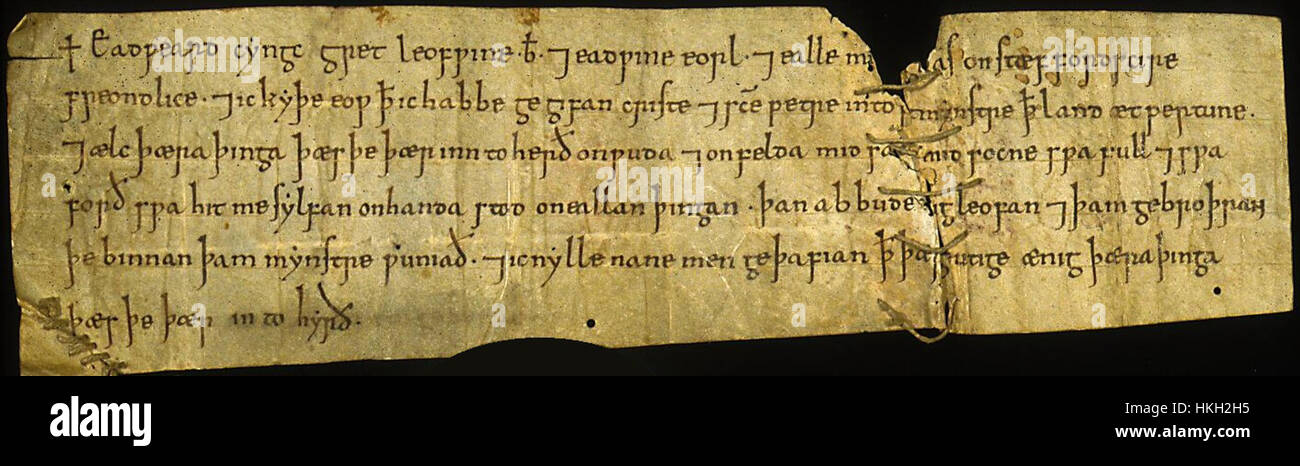 + Eadƿeard cyngc gret leofƿine · b̄ · ⁊ eadƿine eorl · ⁊ ealle m as on stæffordscire
freondlice · ⁊ ic kyþe eoƿ ꝥ ic habbe gegifan criste ⁊ sc̄e petre into mynstre ꝥ land æt pertune ·
⁊ ælc þæra þinga þæs þe þær inn to herð on ƿuda ⁊ on felda mid sa and socne sƿa full ⁊ sƿa
forð sƿa hit me sylfan on handa stod on eallan þingan · þan abbude leofan ⁊ þam gebroþran
þe binnan þam mynstre ƿuniað · ⁊ ic nylle nane men geþafian ꝥ þær utige ænig þæra þinga
þæs þe þær in to hyrð ·
alamy stock photo
HKH2H5
www.alamy.com